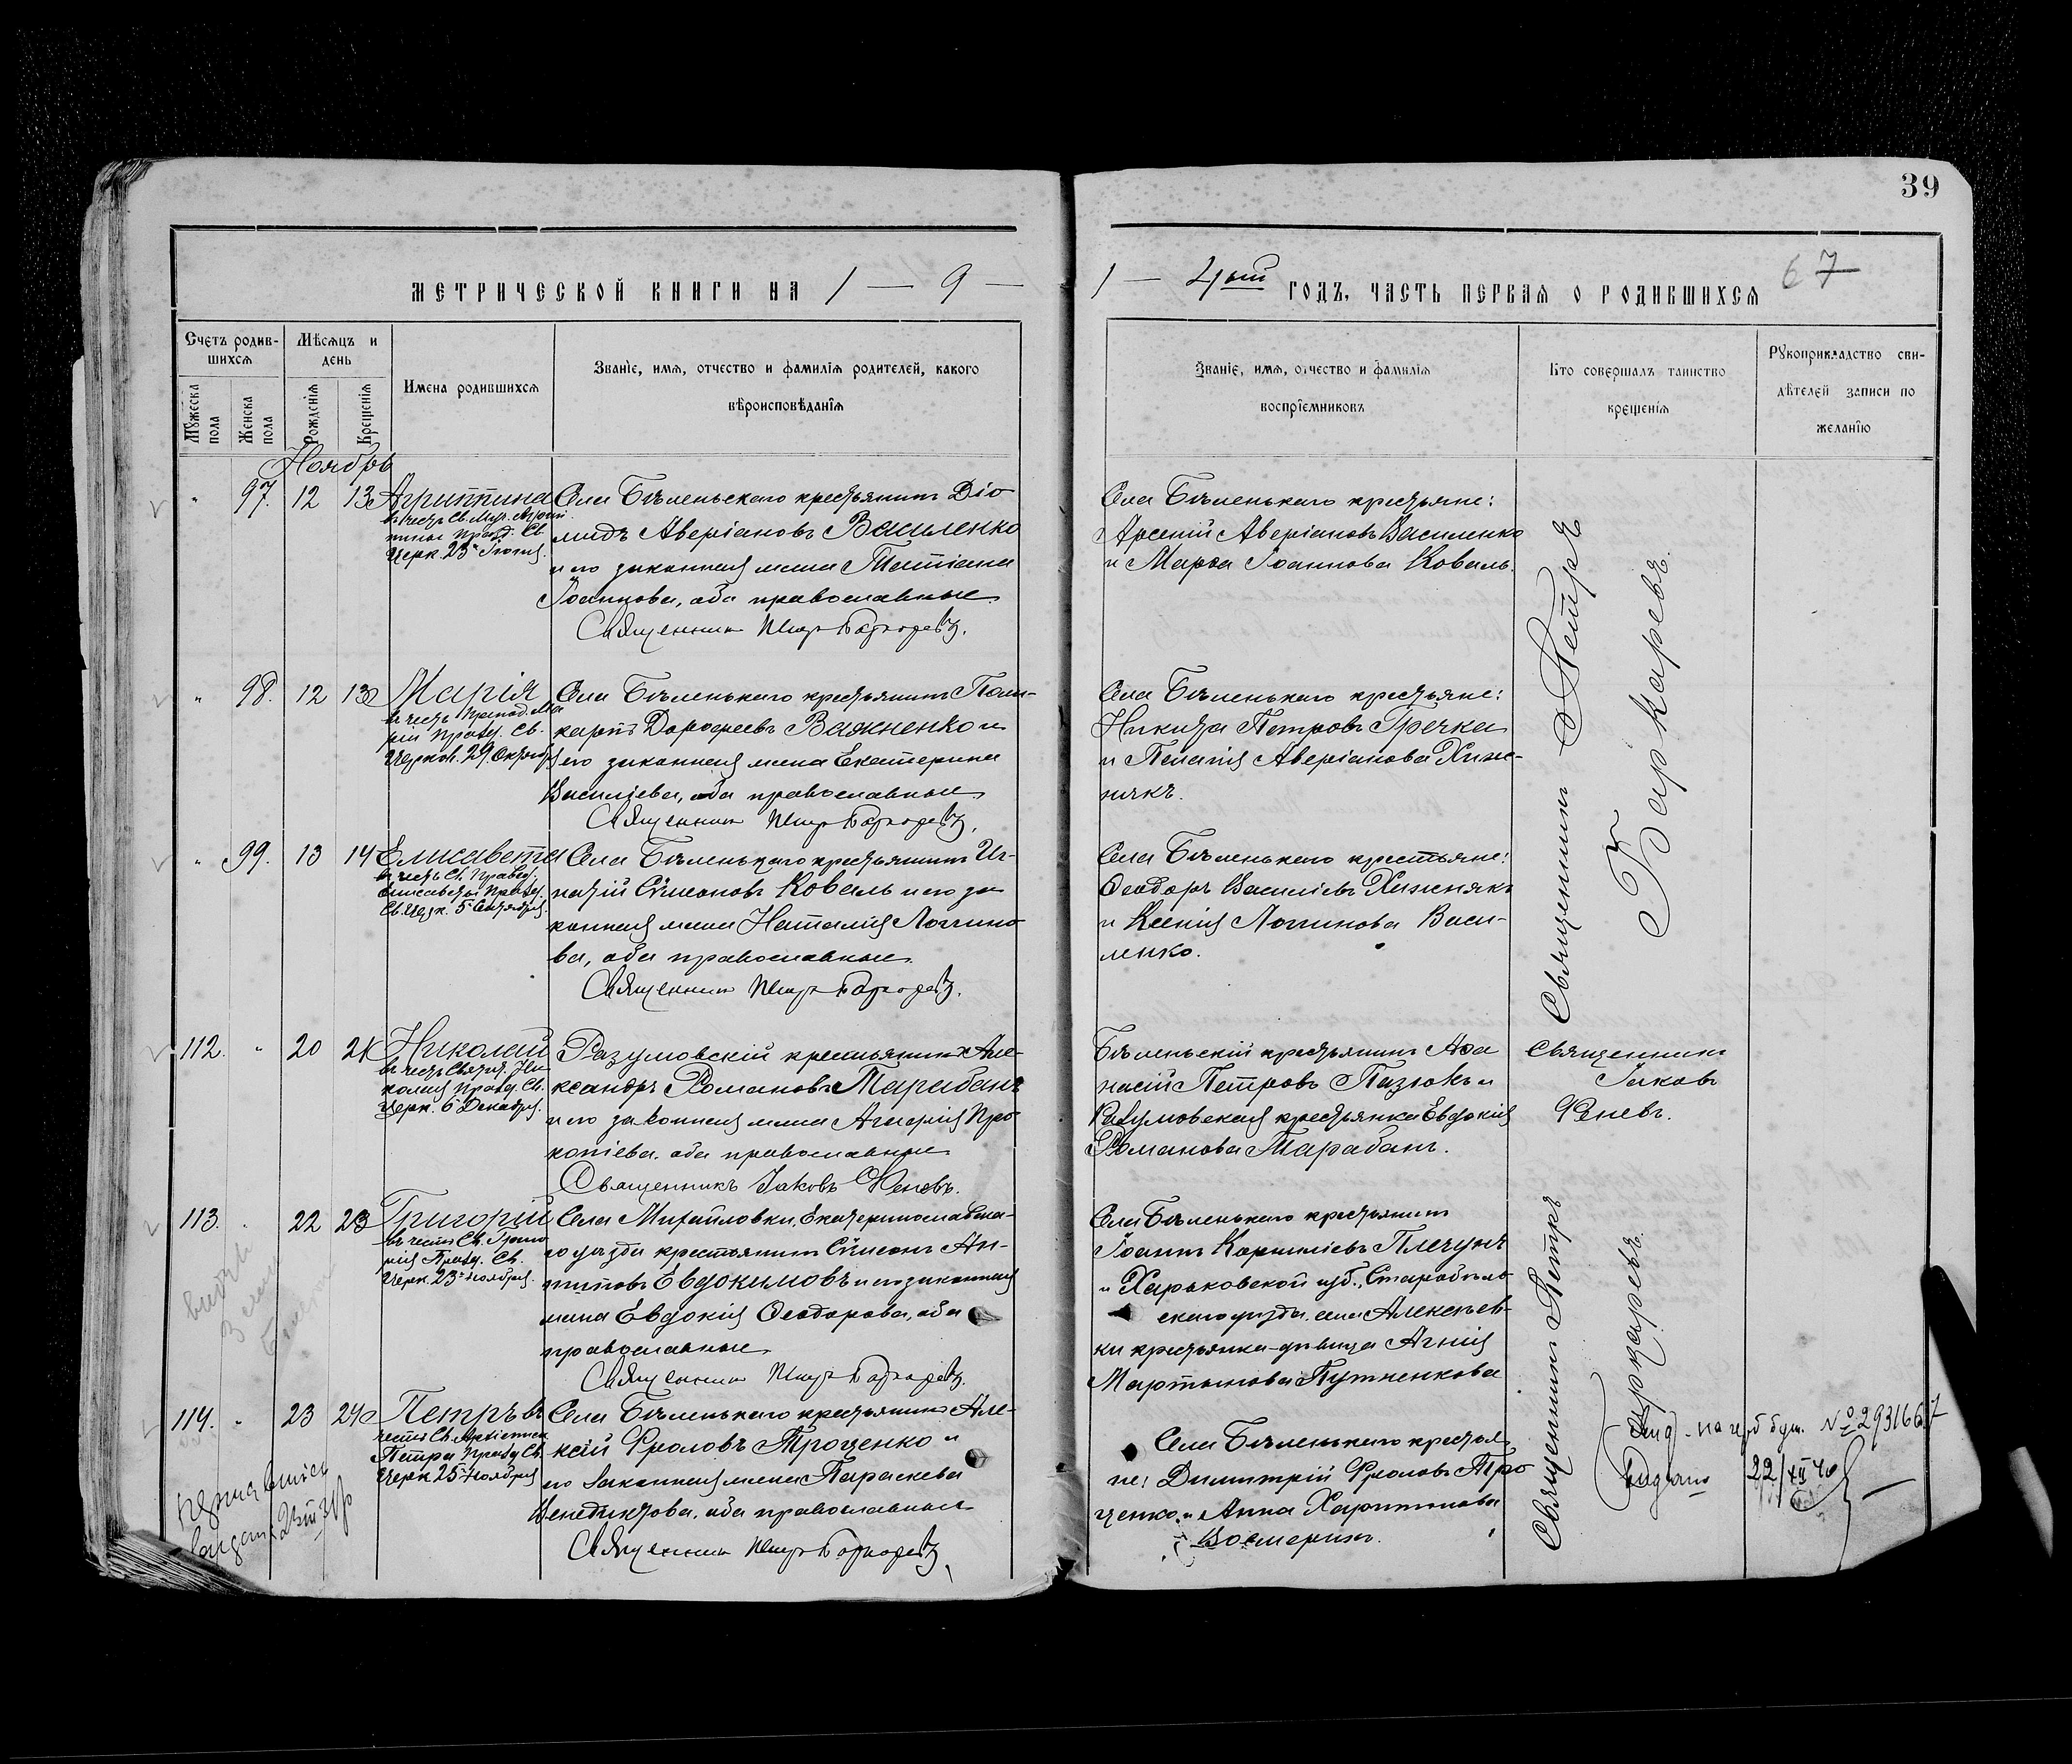 39
МЕТРИЧЕСКОЙ КНИГИ НА 1 — 9 —
1 — 4ый ГОДЪ, ЧАСТЬ ПЕРВАЯ О РОДИВШИХСЯ
67
Счетъ родив-
шихся
Мѣсяцъ и
день
Мужеска
пола
Женска
пола
Рожденія
Крещенія
Имена родившихся
Званіе, имя, отчество и фамилія родителей, какого
вѣроисповѣданія
Званіе, имя, отчество и фамилія
воспріемниковъ
Кто совершалъ таинство
крещенія
Рукоприкладство сви-
дѣтелей записи по
желанію
Ноябрь
" 97. 12 13
Агриппина
въ честь Св. Муч. Агрип-
пины празд. Св.
Церк. 23 Іюня.
Села Бѣленьскаго крестьянинъ Діо
мидъ Аверіановъ Василенко
и его законная жена Татіана
Іоаннова, оба православные.
Священникъ Петръ Баккаревъ.
Села Бѣленькаго крестьяне:
Арсеній Аверіановъ Василенко
и Марѳа Іоаннова Коваль.
Священникъ Петръ
Баккаревъ.
" 98. 12 13
Марія
въ честь препод. Ма
ріи празд. Св.
Церков. 29 Октяб
Села Бѣленькаго крестьянинъ Поли-
карпъ Дороѳеевъ Важненко и
его законная жена Екатерина
Василіева, оба православные
Священникъ Петръ Баккаревъ.
Села Бѣленькаго крестьяне:
Никита Петровъ Гречка
и Пелагія Аверіанова Хиж-
някъ.
" 99. 13 14
Елисавета
въ честь Св. Правед.
Елисаветы празд.
Св. Церк. 5 Сентября.
Села Бѣленькаго крестьянинъ Иг-
натій Сѵмеоновъ Коваль и его за
конная жена Наталія Логгино
ва, оба православные.
Священникъ Петръ Баккаревъ.
Села Бѣленькаго крестьяне:
Ѳеодоръ Василіевъ Хижнякъ
и Ксенія Логгинова Васи-
ленко.
112. " 20 21
Николай
въ честь Святит. Ни-
колая празд. Св.
Церк. 6 Декабря.
Разумовскій крестьянинъ Але-
ксандръ Романовъ Тарабанъ
и его законная жена Агаѳія Про
копіева. оба православные
Священникъ Іаковъ Феневъ.
Бѣленьскій крестьянинъ Аѳа
насій Петровъ Пазюкъ и
Разумовская крестьянка Евдокія
Романова Тарабанъ.
Священникъ
Іаковъ
Феневъ.
113. " 22 23
Григорій
въ честь Св. Григо
рія Празд. Св.
Церк. 23 ноября.
Села Михайловки, Екатеринославска-
го уѣзда крестьянинъ Сѵмеонъ Ан-
типовъ Евдокимовъ и его законная
жена Евдокія Ѳеодорова, оба
православные.
Священникъ Петръ Баккаревъ.
Села Бѣленькаго крестьянинъ
Іоаннъ Корниліевъ Плечунъ
и Харьковской губ., Старобѣль
скаго уѣзда, села Алексѣев-
ки крестьянка-дѣвица Агнія
Мартынова Путненкова
Священникъ Петръ
Баккаревъ.
114. " 23 24
Петръ въ
честь Св. Архіепис
Петра празд. Св.
Церк. 25 Ноября
Села Бѣленькаго крестьянинъ Але-
ксій Фроловъ Троценко и
его законная жена Параскева
Венедиктова, оба православные
Священникъ Петръ Баккаревъ.
Села Бѣленькаго крестья
не: Димитрій Фроловъ Тро
ценко и Анна Харитонова
Восмеринъ.
на герб бум. № 2931667
22/XII 40